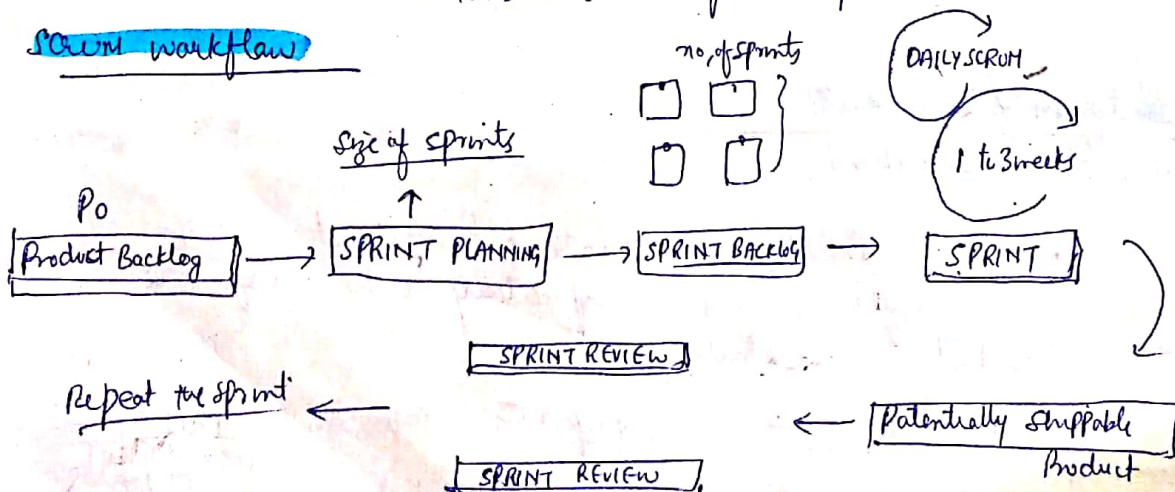 Scrum workflow
no, of sprints
DAILY SCRUM
Size of sprints
1 to 3 weeks
PO
Product Backlog
SPRINT PLANNING
SPRINT BACKLOG
SPRINT
SPRINT REVIEW
Repeat the sprint
Potentially Shippable
Product
SPRINT REVIEW